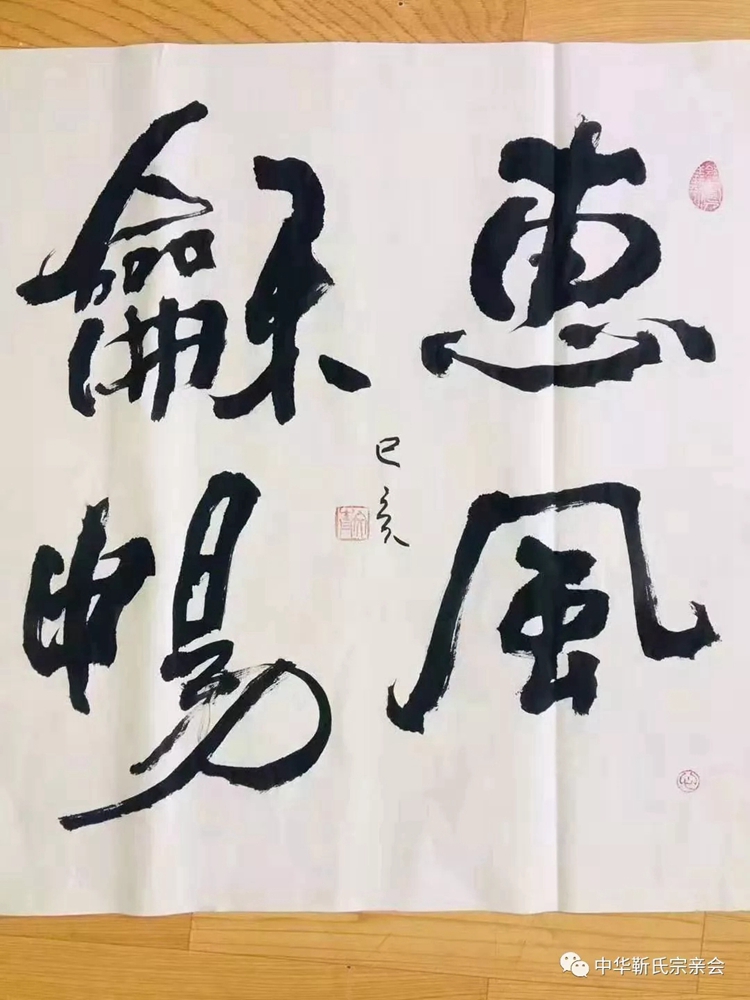 惠風
龢暢
己亥
中华靳氏宗亲会